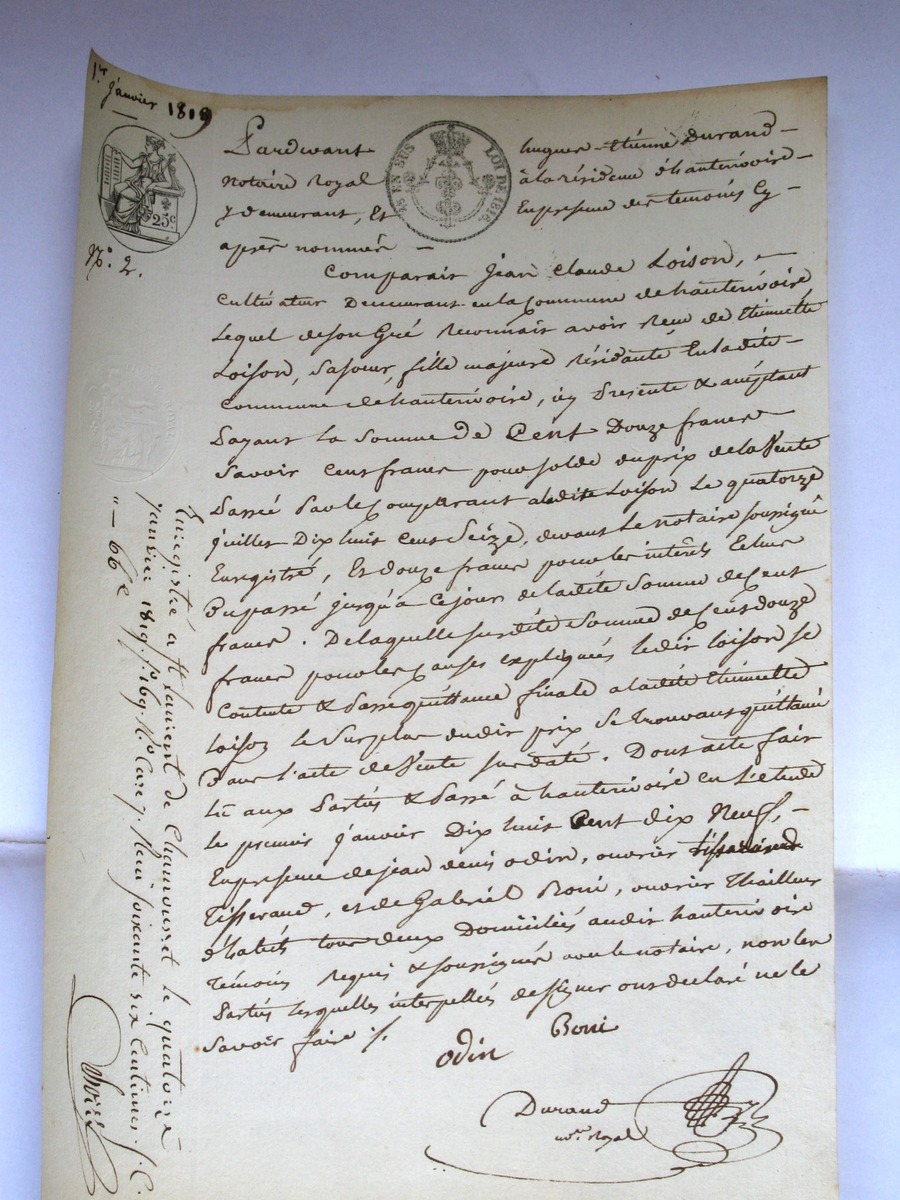 1er Janvier 1819
25 c
No. 2.
25 EN SUS
LOI DE 1816.
Pardevant hugues Etienne Durand
notaire Royal à la résidence d'hauterivoire
y demeurant, Et En presence des temoins Cy
après nommés
Comparait Jean Claude Loison,
Cultivateur Demeurant en la Commune de hauterivoire
Lequel de son Gré Reconnait avoir Reçu de Etiennette
Loison, Sa soeur, fille majeure Résidante En ladite
Commune de hauterivoire, icy Presente & acceptant
Payant la Somme de Cent Douze francs
Savoir Cent francs pour solde du prix de la Vente
Passée Par le Comparant a ladite Loison Le quatorze
juillet Dix huit Cent Seize, devant Le notaire soussigné
Enregistré, Et douze francs pour les intérêts Echus
Du passé jusqu'à ce jour de ladite Somme de Cent
francs. De laquelle susdite Somme de Cent douze
francs pour les Causes expliquées ledit loison se
Contente & Passe quittance finale a ladite Etiennette
loison le Surplus dudit prix Se trouvant quittancé
Dans l'acte de Vente susdaté. Dont acte fait
lu aux Parties & Passé à hauterivoire en L'etude
le premier janvier Dix huit Cent dix Neuf,
En presence de jean denis odin, ouvrier tisserand
Tisserand, et de Gabriel Boni, ouvrier Thailleur
d'habits tous deux Domiciliés audit hauterivoire
Témoins Requis & soussignés avec le notaire, non les
Parties lesquelles interpellées de signer ont declaré ne le
Savoir faire ./.
odin Boni
Durand
nore Royal
Enregistré à St Laurent de Chamousset le quatorze
janvier 1819. fo 169. Ro Case 7. Reçu soixante six Centimes. S. C.
" — 66 c